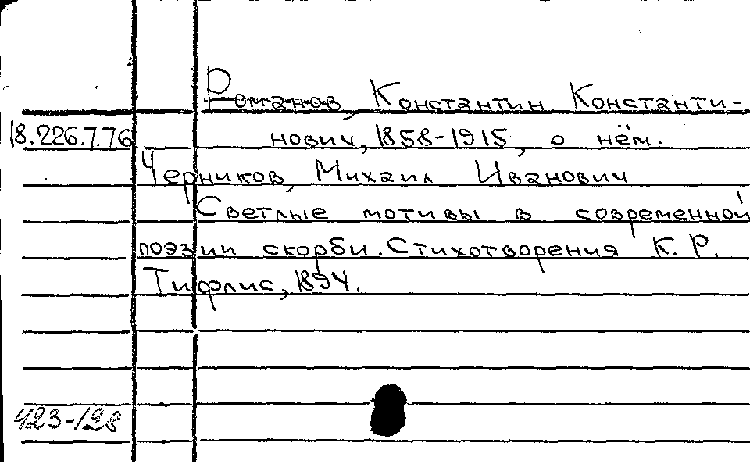 Романов, Константин Константи-
18.226.776 нович, 1858-1915, о нём.
Черников, Михаил Иванович
Светлые мотивы в современной
поэзии скорби. Стихотворения К. Р.
Тифлис, 1894.
423-128